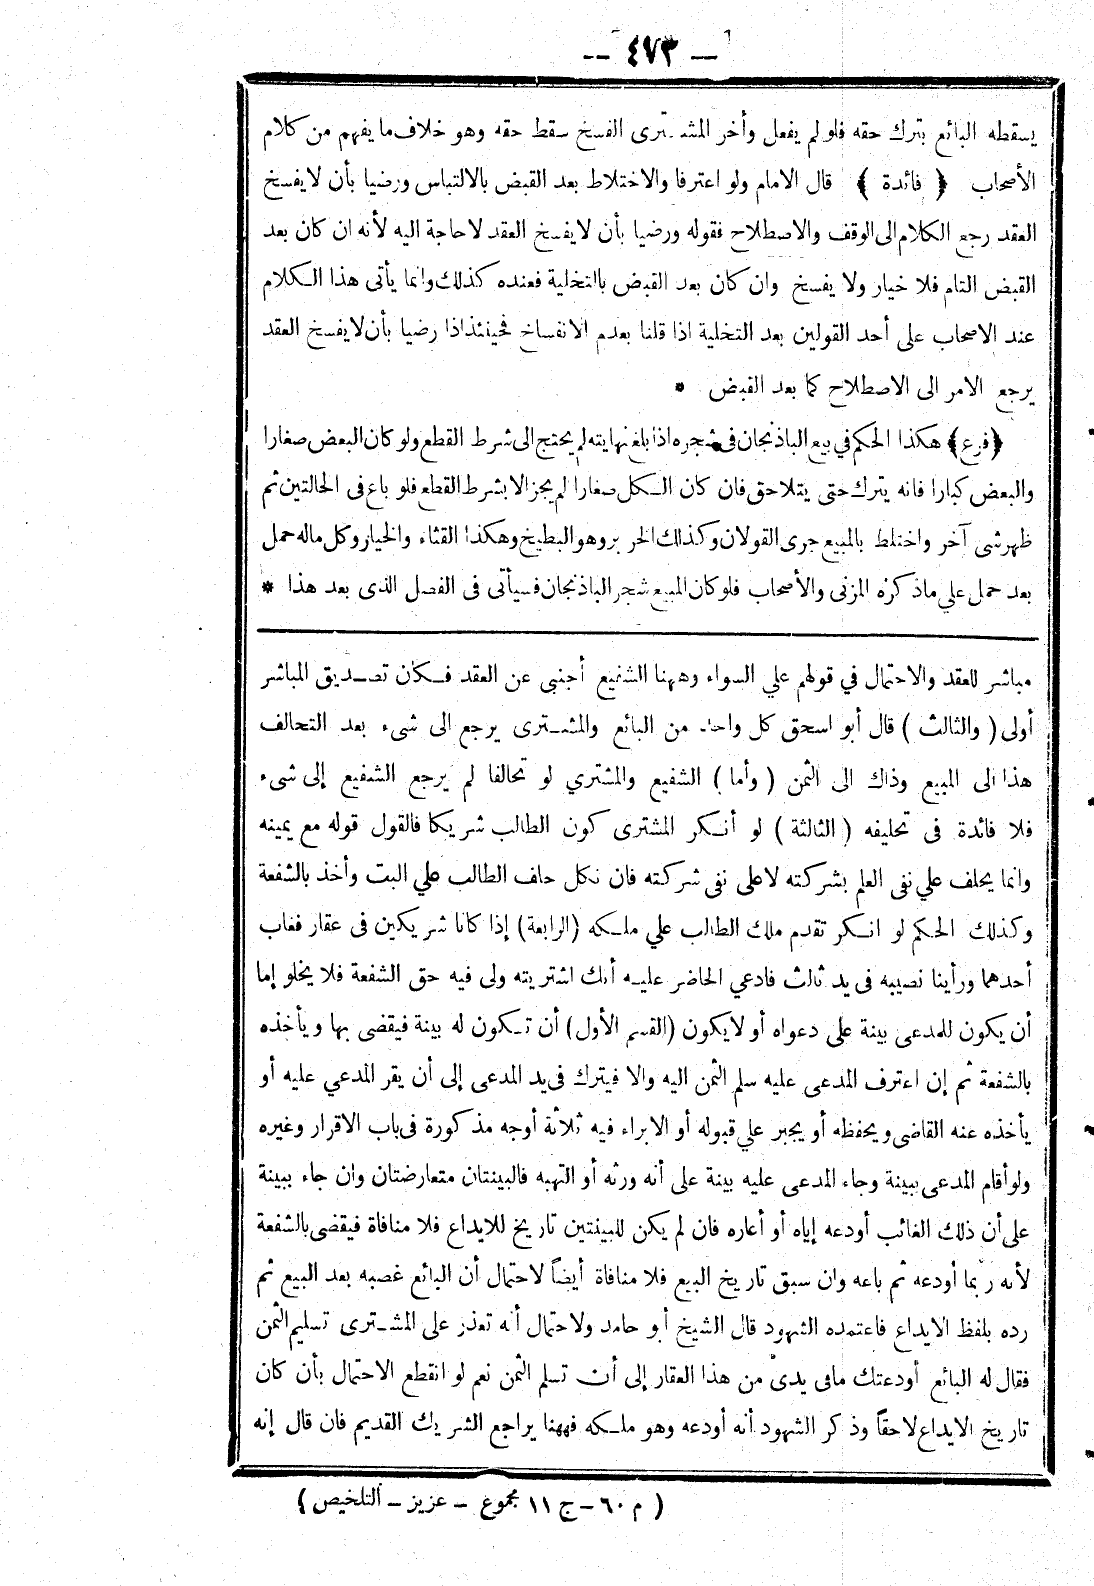 -- ٤٧٣ --
يسقطه البائع بترك حقه فلو لم يفعل وأخر المشترى الفسخ سقط حقه وهو خلاف ما يفهم من كلام
الأصحاب ﴿ فائدة ﴾ قال الامام ولو اعترفا والاختلاط بعد القبض بالالتباس ورضيا بأن لا يفسخ
العقد رجع الكلام الى الوقف والاصطلاح فقوله ورضيا بأن لا يفسخ العقد لا حاجة اليه لأنه ان كان بعد
القبض التام فلا خيار ولا يفسخ وان كان بعد القبض بالتخلية فعنده كذلك وانما يأتى هذا الكلام
عند الاصحاب على أحد القولين بعد التخلية اذا قلنا بعدم الانفساخ فحينئذ اذا رضيا بأن لا يفسخ العقد
يرجع الامر الى الاصطلاح كما بعد القبض *
﴿فرع﴾ هكذا الحكم في بيع الباذنجان فى شجره اذا بلغ نهايته لم يحتج الى شرط القطع ولو كان البعض صغارا
والبعض كبارا فانه يترك حتى يتلاحق فان كان الكل صغارا لم يجز الا بشرط القطع فلو باع فى الحالتين ثم
ظهر شىء آخر واختلط بالمبيع جرى القولان وكذلك الخربز وهو البطيخ وهكذا القثاء والخيار وكل ماله حمل
بعد حمل علي ما ذكره المزنى والأصحاب فلو كان المبيع شجر الباذنجان فسيأتى فى الفصل الذى بعد هذا *
مباشر للعقد والاحتمال في قولهم علي السواء وههنا الشفيع أجنبى عن العقد فكان تصديق المباشر
أولى ( والثالث ) قال أبو اسحق كل واحد من البائع والمشترى يرجع الى شىء بعد التحالف
هذا الى المبيع وذاك الى الثمن ( وأما ) الشفيع والمشتري لو تحالفا لم يرجع الشفيع إلى شىء
فلا فائدة فى تحليفه ( الثالثة ) لو أنكر المشترى كون الطالب شريكا فالقول قوله مع يمينه
وانما يحلف علي نفى العلم بشركته لا على نفى شركته فان نكل حلف الطالب علي البت وأخذ بالشفعة
وكذلك الحكم لو انكر تقدم ملك الطالب علي ملكه (الرابعة) إذا كانا شريكين فى عقار فغاب
أحدهما ورأينا نصيبه فى يد ثالث فادعي الحاضر عليه أنك اشتريته ولى فيه حق الشفعة فلا يخلو إما
أن يكون للمدعى بينة على دعواه أو لا يكون (القسم الأول) أن تكون له بينة فيقضى بها ويأخذه
بالشفعة ثم إن اعترف المدعى عليه سلم الثمن اليه والا فيترك فى يد المدعى إلى أن يقر المدعي عليه أو
يأخذه عنه القاضى ويحفظه أو يجبر علي قبوله أو الابراء فيه ثلاثة أوجه مذكورة فى باب الاقرار وغيره
ولو أقام المدعى ببينة وجاء المدعى عليه بينة على أنه ورثه أو اتهبه فالبينتان متعارضتان وان جاء ببينة
على أن ذلك الغائب أودعه إياه أو أعاره فان لم يكن للبينتين تاريخ للايداع فلا منافاة فيقضى بالشفعة
لأنه ربما أودعه ثم باعه وان سبق تاريخ البيع فلا منافاة أيضاً لاحتمال أن البائع غصبه بعد البيع ثم
رده بلفظ الايداع فاعتمده الشهود قال الشيخ أبو حامد ولاحتمال أنه تعذر على المشترى تسليم الثمن
فقال له البائع أودعتك مافى يدى من هذا العقار إلى أن تسلم الثمن نعم لو انقطع الاحتمال بأن كان
تاريخ الايداع لاحقاً وذكر الشهود أنه أودعه وهو ملكه فههنا يراجع الشريك القديم فان قال إنه
( م ٦٠ - ج ١١ مجموع - عزيز - التلخيص )